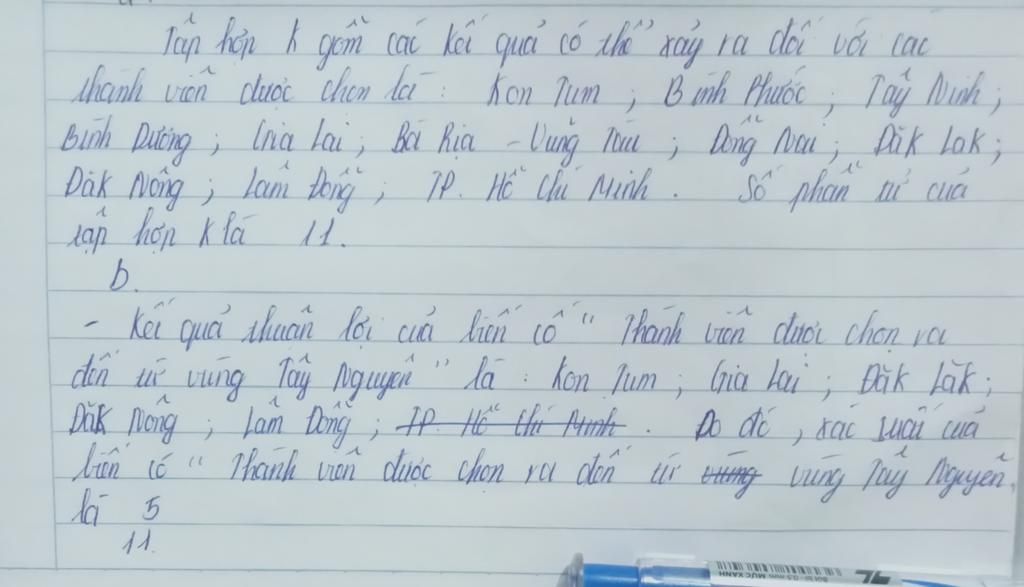 Tập hợp K gồm các kết quả có thể xảy ra đối với các
thành viên được chọn là : Kon Tum ; Bình Phước ; Tây Ninh ;
Bình Dương ; Gia Lai ; Bà Rịa - Vũng Tàu ; Đồng Nai ; Đăk Lak ;
Đăk Nông ; Lâm Đồng ; TP. Hồ Chí Minh . Số phần tử của
tập hợp K là 11.
b.
- Kết quả thuận lợi của biến cố " Thành viên được chọn ra
đến từ vùng Tây Nguyên " là : Kon Tum ; Gia Lai ; Đăk Lăk ;
Đăk Nông ; Lâm Đồng ; TP. Hồ Chí Minh . Do đó , xác suất của
biến cố " Thành viên được chọn ra đến từ vùng vùng Tây Nguyên
là 5
11.